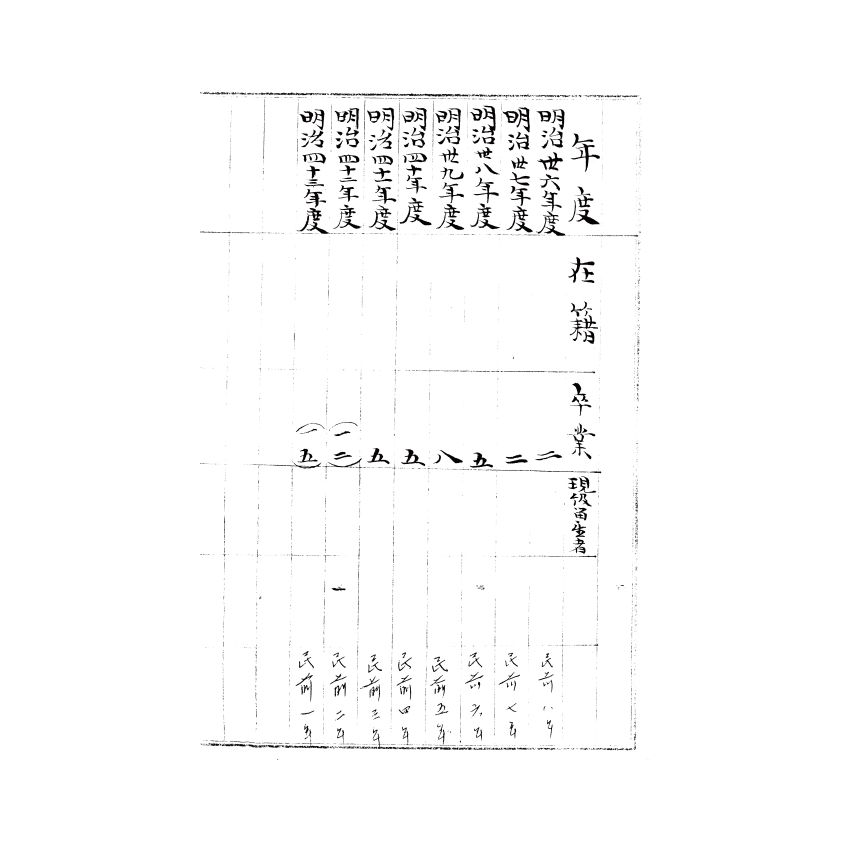 年度 在籍 卒業 現役留学者
明治卅六年度 二 民前八年
明治卅七年度 二 民前七年
明治卅八年度 五 民前六年
明治卅九年度 八 民前五年
明治四十年度 五 民前四年
明治四十一年度 五 民前三年
明治四十二年度 (一二) 一 民前二年
明治四十三年度 (一五) 民前一年